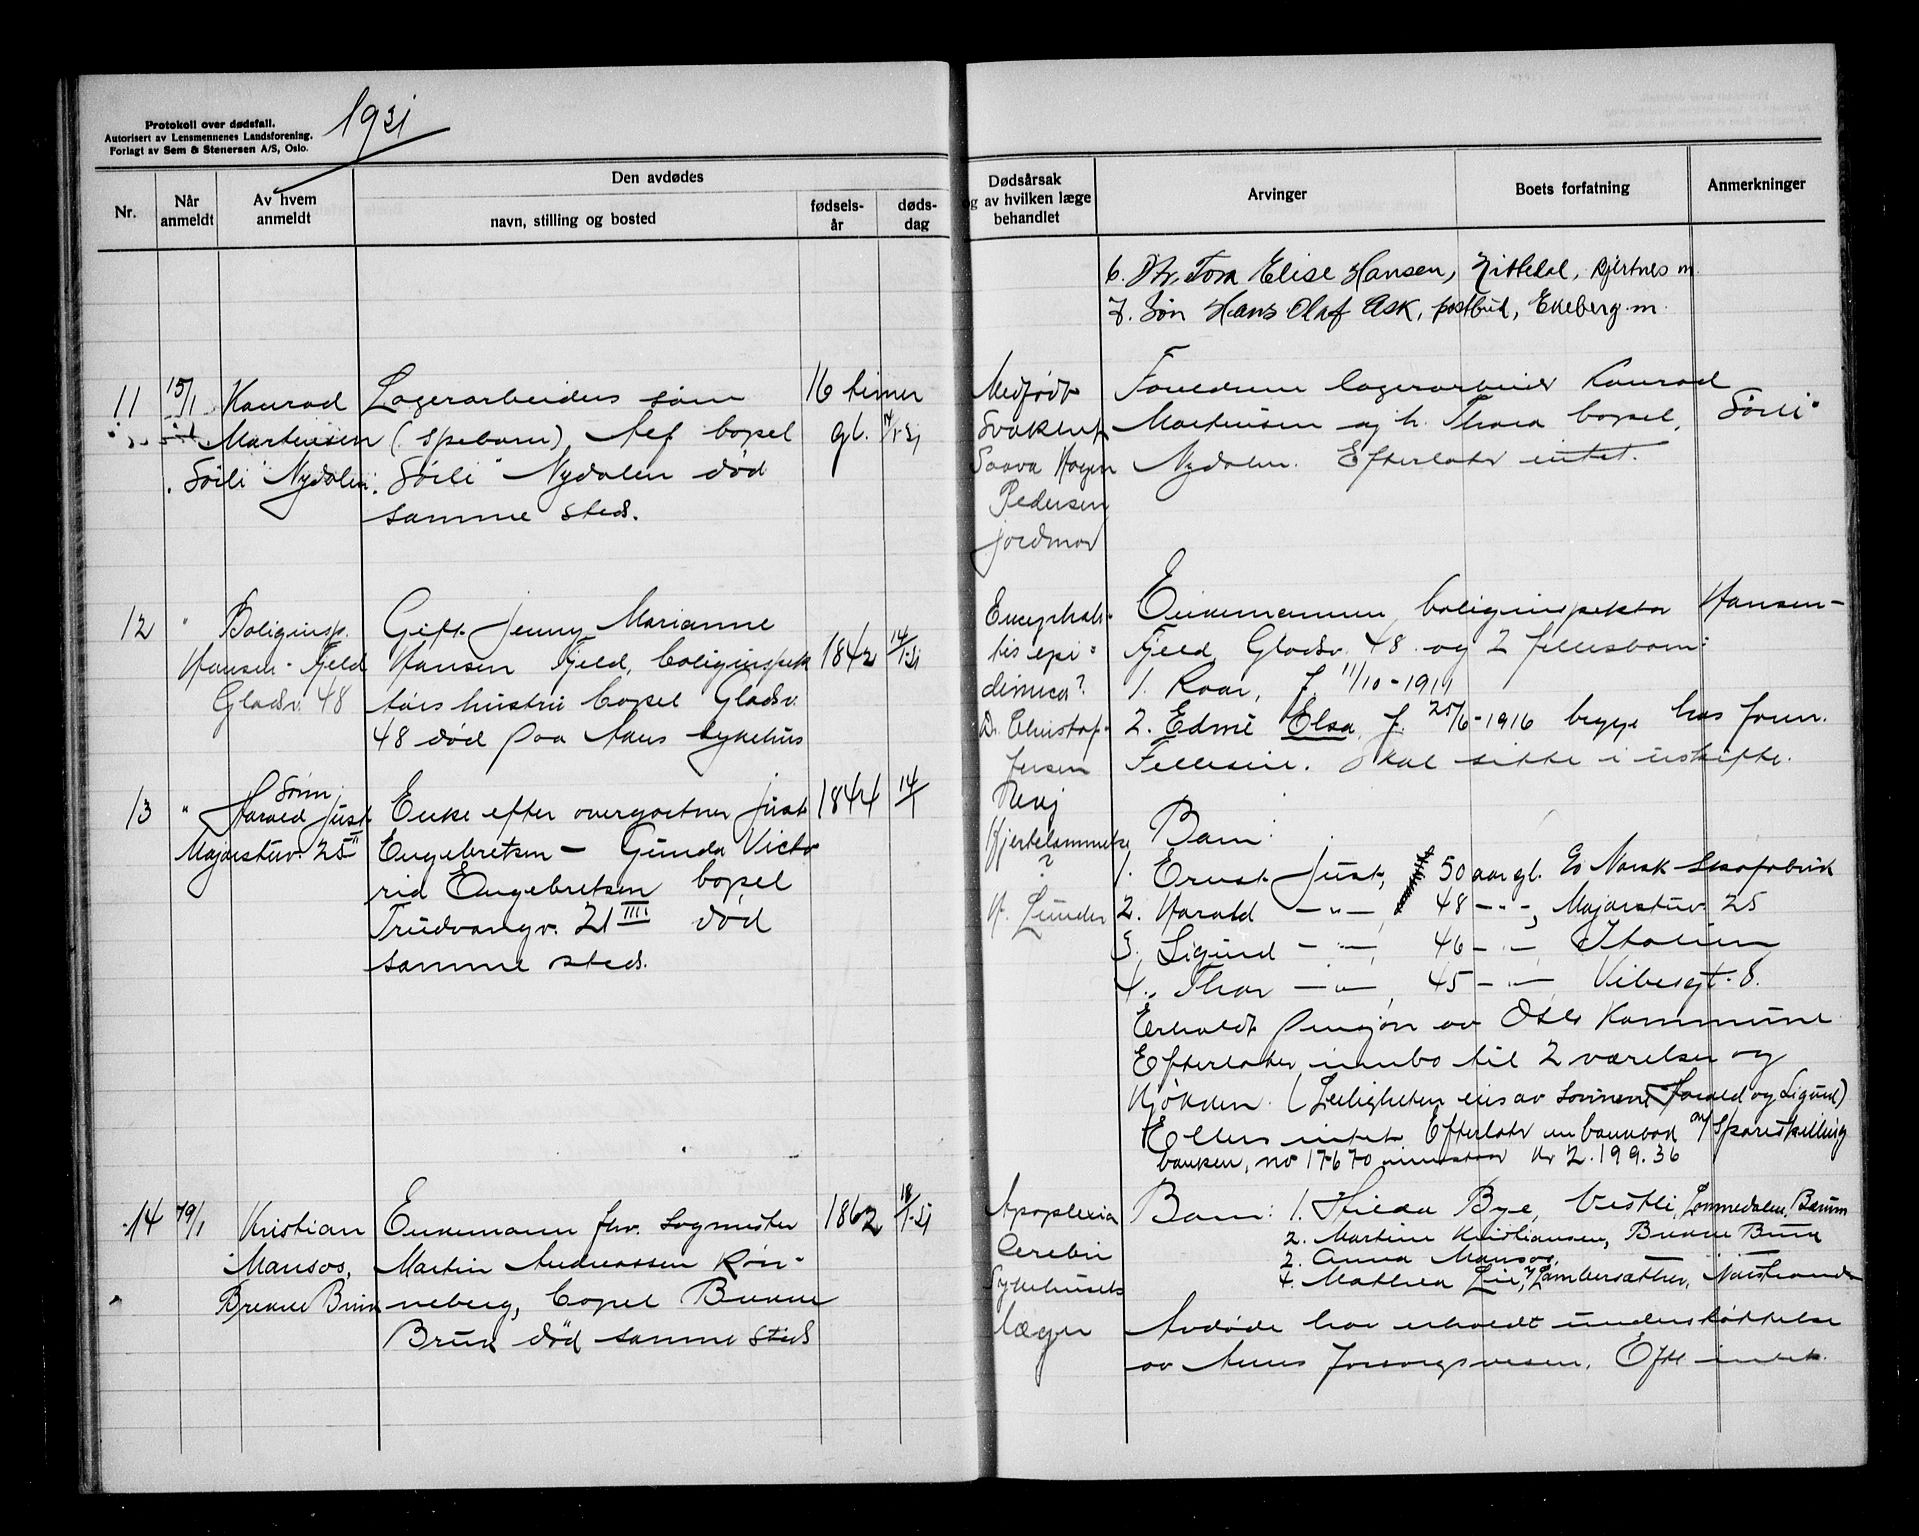 Protokoll over dødsfall.
Autorisert av Lensmennenes Landsforening.
Forlagt av Sem & Stenersen A/S, Oslo.
1931
Nr.
Når anmeldt
Av hvem anmeldt
Den avdødes
navn, stilling og bosted
fødsels-
år
døds-
dag
Dødsårsak
og av hvilken læge
behandlet
Arvinger
Boets forfatning
Anmerkninger
6. Dtr. Tora Elise Hansen, Nittedal, Kjertnes m.
7. Søn Hans Olaf Ask, postbud, Ekeberg m.
11
15/1
Konrad
Martinsen
"Sörli" Nydalen
Lagerarbeiders sønn
(spebarn) Aef bopel
"Sörli" Nydalen død
samme sted.
16 timer
gl.
14/1-31
Medfødt
Svakhet
Hagen
Pedersen
jordmor
Foreldrene lagerarbeider Konrad
Martinsen og h. Thora bopel, "Sörli"
Nydalen. Efterlater intet.
12
"
Boliginsp.
Hansen-Fjeld
Gladsv. 48
Gift. Jenny Marianne
Hansen Fjeld, boliginspek
tørs hustru bopel Gladsv.
48 død paa Akers sykehus
14/1-31
Encephali-
tis epi-
demica?
Dr. Christof.
Jensen
Enkemannen, boliginspektør Hansen-
Fjeld Gladsv. 48 og 2 fellesbarn:
1. Roar, f. 11/10-1911
2. Edmé Elsa f. 25/6-1916 begge hos foren.
Felleseie. Skal sitte i uskifte.
13
"
Sønn
Harald Just
Majorstuv. 25 II
Enke efter overgartner Just
Engebretsen - Gunda Victo
ria Engebretsen bopel
Trudvangv. 21 III død
samme sted.
1844
14/1
Hjertelammelse
?
H. Lunder
Barn:
1. Ernst Just, 50 aar gl. Norsk Skofabrik
2. Harald -"-, 48 -"-, Majorstuv. 25
3. Sigurd -"-, 46 -"- Italien
4. Thor -"-, 45 -"- Vibesgt. 8.
Erholdt pensjon av Oslo Kommune
Efterlater innbo til 2 værelser og
Kjøkken. (Leiligheten eies av sønnene Harald og Sigurd)
Ellers intet. Efterlater en bankbok m/ Spareskilling
banken, no 17670 innestaar kr 2.199.36
14
19/1
Kristian
Mansos,
Brekke Bruk
Enkemann fhv. Sagmester
Martin Andreassen Røn-
neberg, bopel Brekke
Bruk død samme sted
1862
18/1-31
Apoplexia
Cerebri
Sykehusets
læger
Barn: 1. Hilda Bye, Vestli, Lommedalen, Bærum
2. Martine Kristiansen, Brekke Bruk
2. Anna Mansos,
4. Mathea Lie, Lambersæther, Nordstrand
Avdøde har erholdt understøttelse
av Akers forsorgsvesen. Eftl intet.